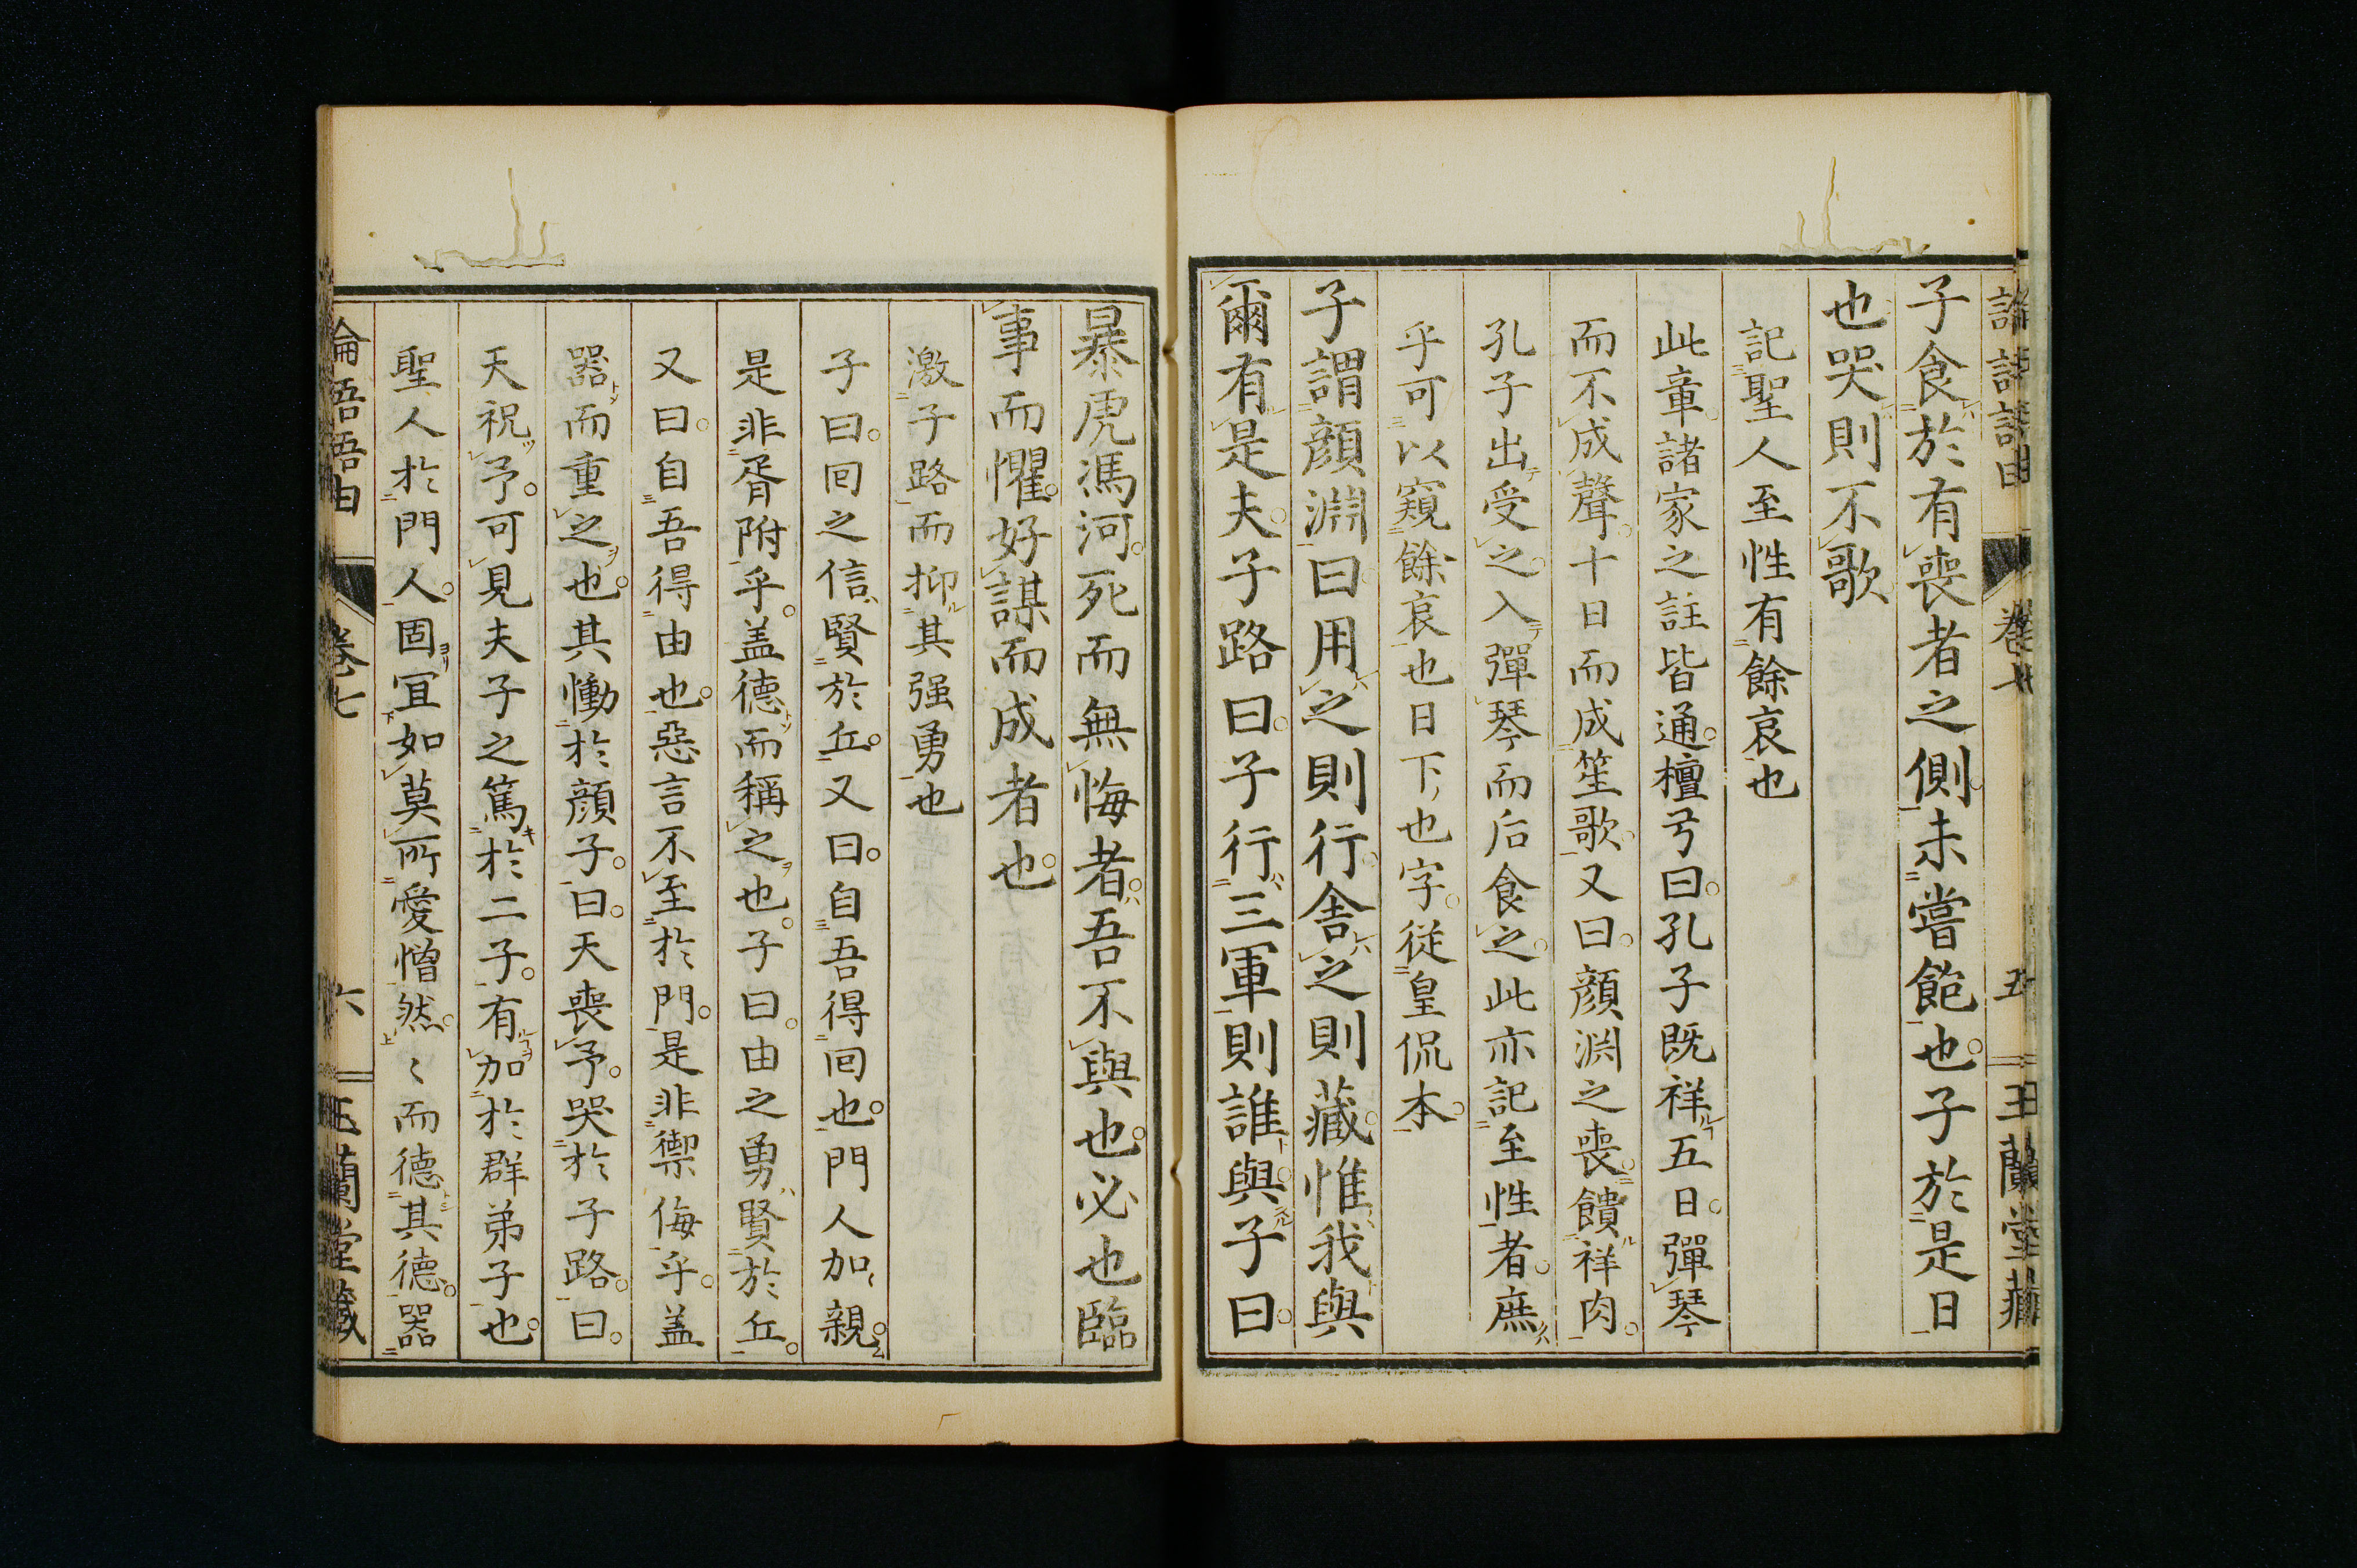 論語語由 卷七 五 玉蘭堂藏
子食於有喪者之側未嘗飽也子於是日
也哭則不歌
記聖人至性有餘哀也
此章諸家之註皆通檀弓曰孔子既祥五日彈琴
而不成聲十日而成笙歌又曰顔淵之喪饋祥肉
孔子出受之入彈琴而后食之此亦記至性者庶
乎可以窺餘哀也日下也字從皇侃本
子謂顔淵曰用之則行舎之則藏惟我與
爾有是夫子路曰子行三軍則誰與子曰
暴虎馮河死而無悔者吾不與也必也臨
事而懼好謀而成者也
激子路而抑其强勇也
子曰回之信賢於丘又曰自吾得回也門人加親
是非胥附乎盖德而稱之也子曰由之勇賢於丘
又曰自吾得由也惡言不至於門是非禦侮乎盖
器而重之也其慟於顔子曰天喪予哭於子路曰
天祝予可見夫子之篤於二子有加於群弟子也
聖人於門人固冝如莫所愛憎然〻而德其德器
論語語由 卷七 六 玉蘭堂藏